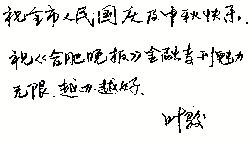 祝全市人民国庆及中秋快乐.
祝《合肥晚报》金融专刊魅力
无限.越办越好.
叶毅